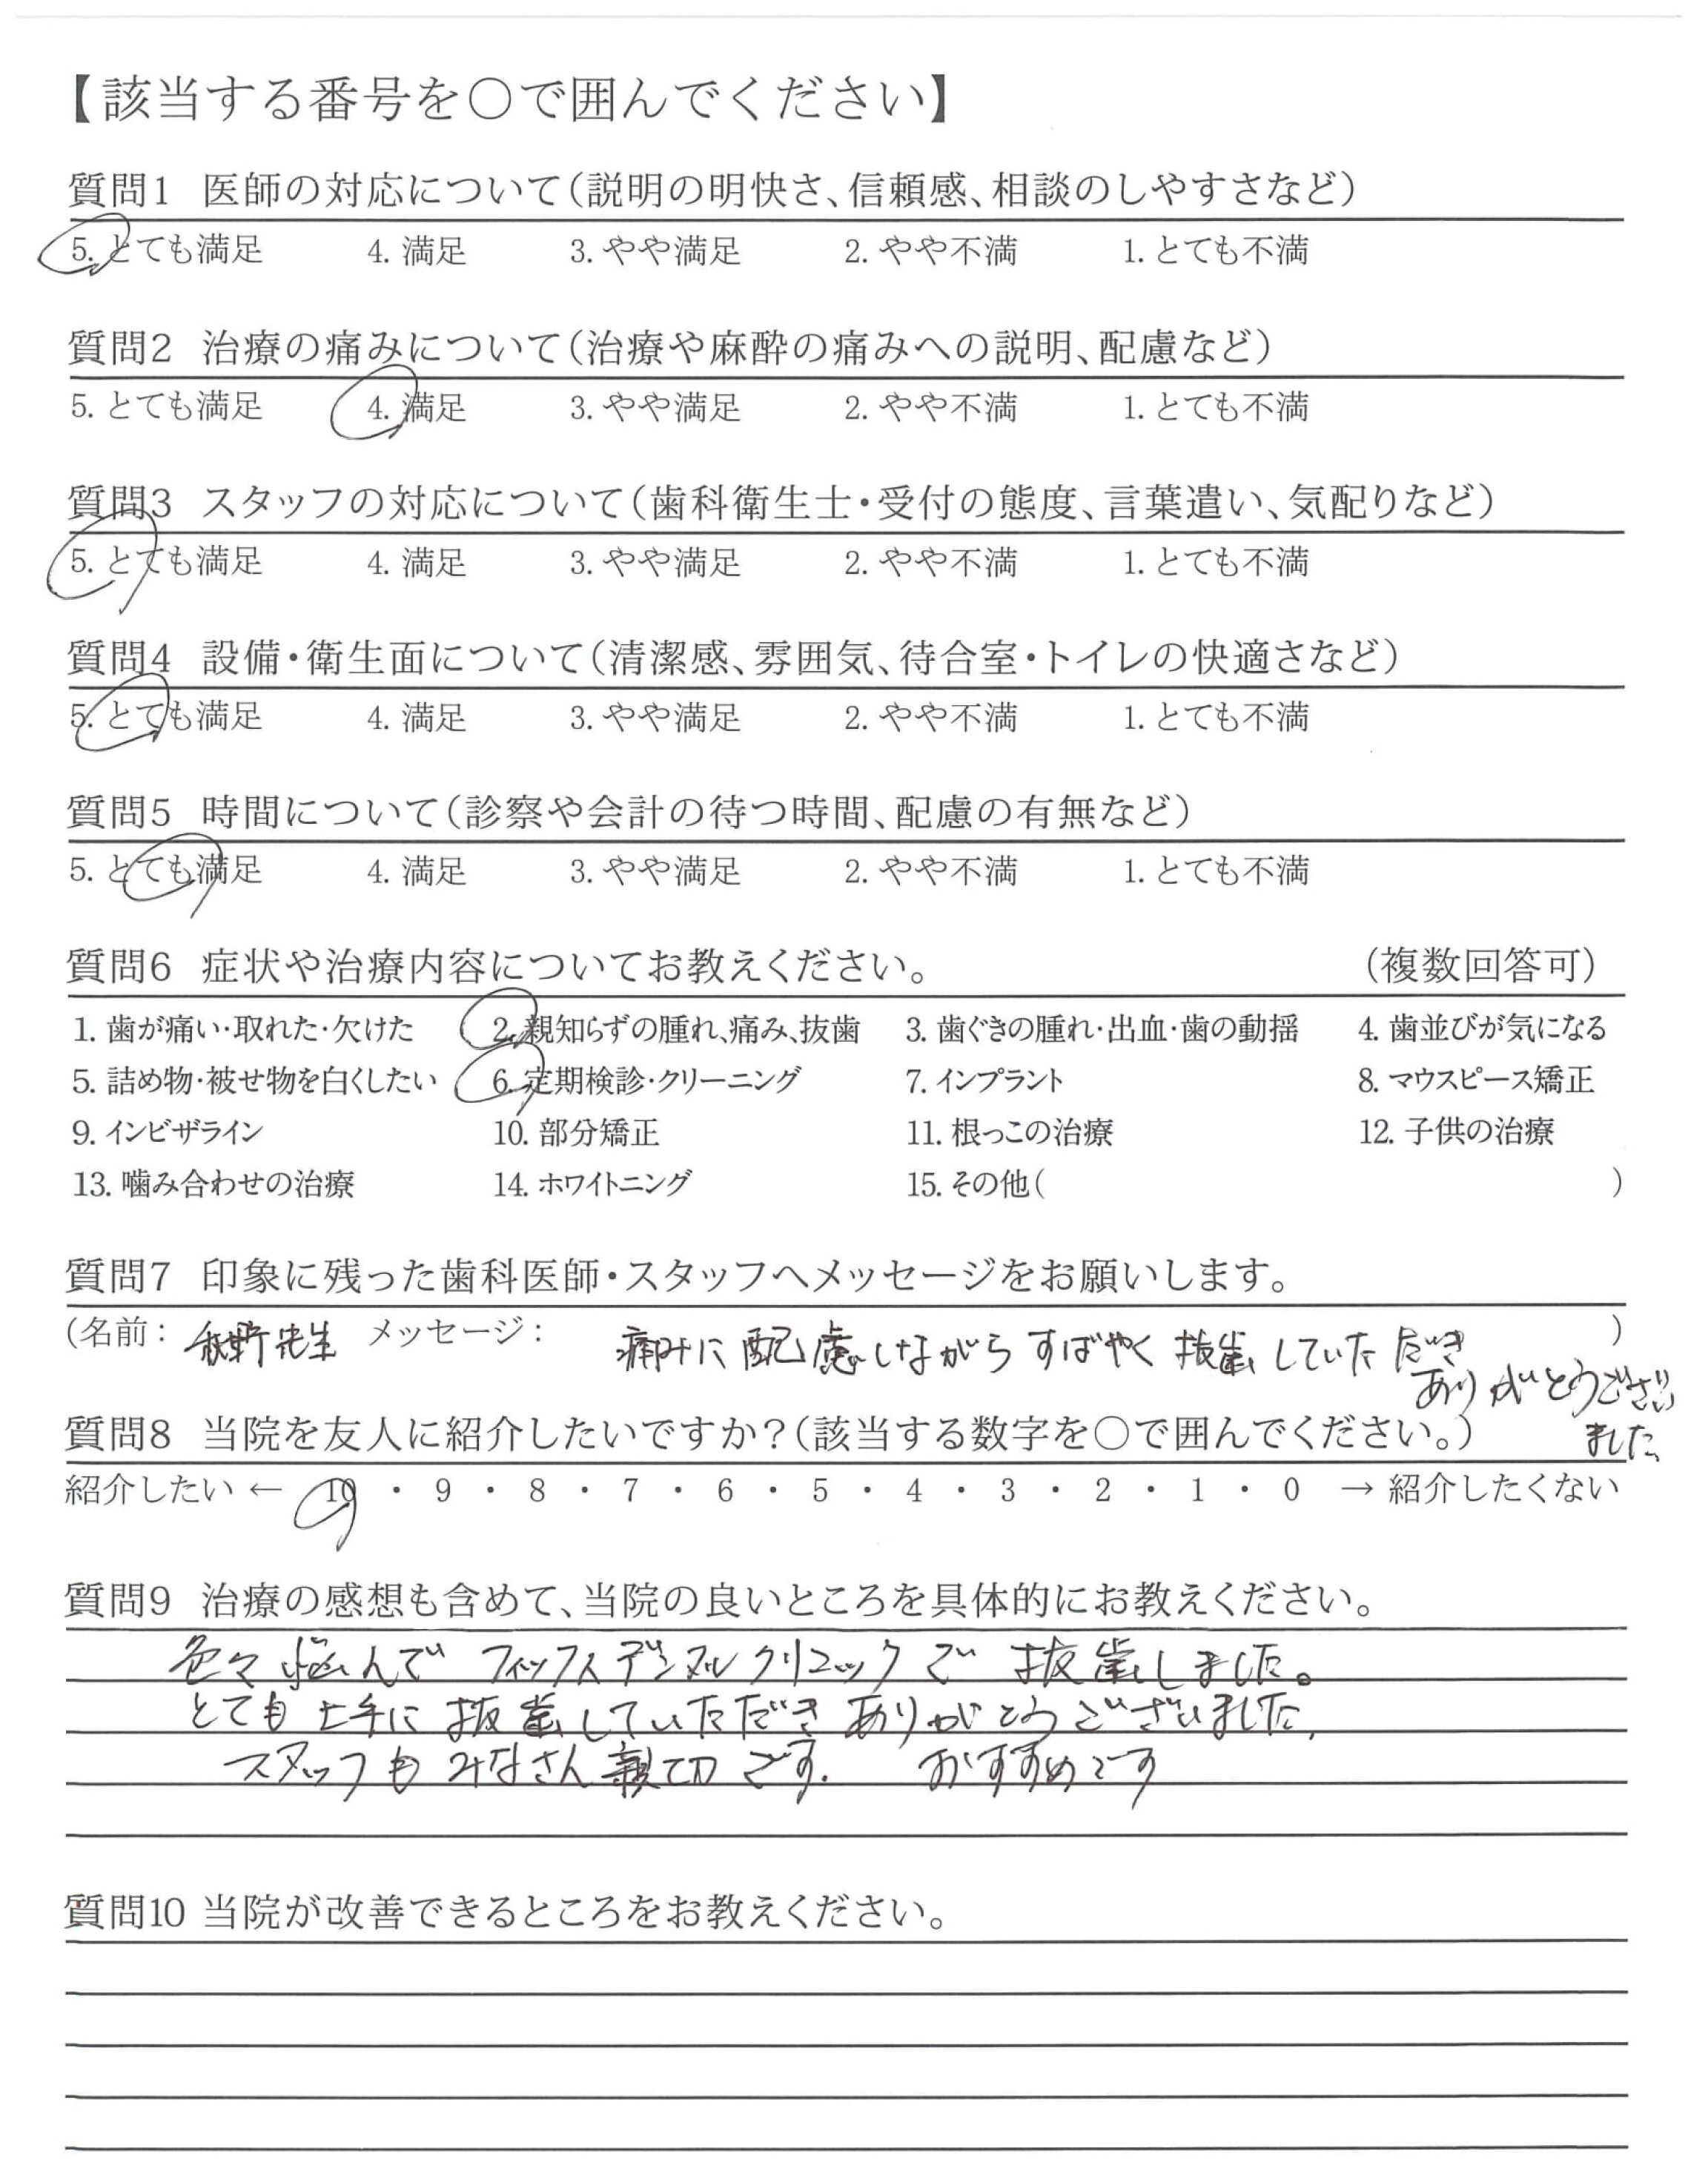 【該当する番号を○で囲んでください】
質問1 医師の対応について(説明の明快さ、信頼感、相談のしやすさなど)
5. とても満足 4. 満足 3. やや満足 2. やや不満 1. とても不満
質問2 治療の痛みについて(治療や麻酔の痛みへの説明、配慮など)
5. とても満足 4. 満足 3. やや満足 2. やや不満 1. とても不満
質問3 スタッフの対応について(歯科衛生士・受付の態度、言葉遣い、気配りなど)
5. とても満足 4. 満足 3. やや満足 2. やや不満 1. とても不満
質問4 設備・衛生面について(清潔感、雰囲気、待合室・トイレの快適さなど)
5. とても満足 4. 満足 3. やや満足 2. やや不満 1. とても不満
質問5 時間について(診察や会計の待つ時間、配慮の有無など)
5. とても満足 4. 満足 3. やや満足 2. やや不満 1. とても不満
質問6 症状や治療内容についてお教えください。 (複数回答可)
1. 歯が痛い・取れた・欠けた 2. 親知らずの腫れ、痛み、抜歯 3. 歯ぐきの腫れ・出血・歯の動揺 4. 歯並びが気になる
5. 詰め物・被せ物を白くしたい 6. 定期検診・クリーニング 7. インプラント 8. マウスピース矯正
9. インビザライン 10. 部分矯正 11. 根っこの治療 12. 子供の治療
13. 噛み合わせの治療 14. ホワイトニング 15. その他( )
質問7 印象に残った歯科医師・スタッフへメッセージをお願いします。
(名前: 先生 メッセージ: 痛みに配慮しながらすばやく抜歯していただき )
ありがとうござい
ました
質問8 当院を友人に紹介したいですか?(該当する数字を○で囲んでください。)
紹介したい ← 10 ・ 9 ・ 8 ・ 7 ・ 6 ・ 5 ・ 4 ・ 3 ・ 2 ・ 1 ・ 0 → 紹介したくない
質問9 治療の感想も含めて、当院の良いところを具体的にお教えください。
色々悩んで フィックスデンタルクリニックで 抜歯しました。
とても上手に抜歯していただきありがとうございました。
スタッフもみなさん親切です. おすすめです
質問10 当院が改善できるところをお教えください。